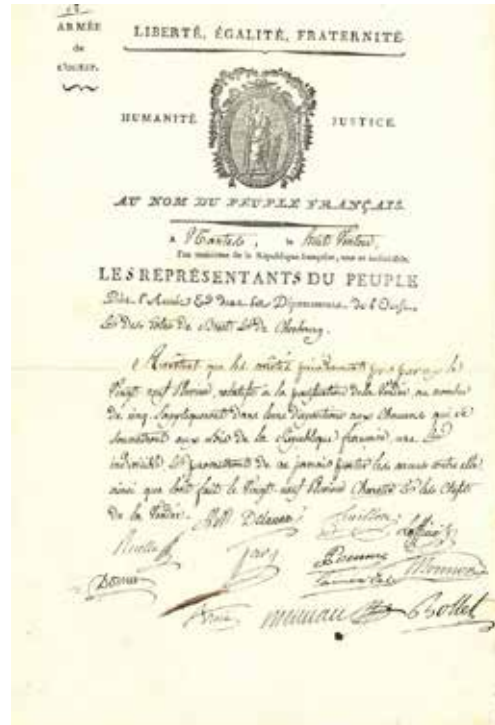 ARMÉE
de
L'OUEST.
LIBERTÉ, ÉGALITÉ, FRATERNITÉ.
HUMANITÉ. JUSTICE.
AU NOM DU PEUPLE FRANÇAIS.
A Nantes, le huit Ventose,
l'an troisième de la République française, une et indivisible.
LES REPRÉSENTANTS DU PEUPLE
Près l'Armée & dans les Départemens de l'Ouest
& des Côtes de Brest & de Cherbourg.
Arrêtent que les arrêtés le
Vingt neuf Pluviose, relatifs à la pacification de la Vendée au nombre
de cinq S'appliquent dans leurs dispositions aux Chouans qui se
soumettront aux lois de la République française une &
indivisible & promettront de ne jamais porter les armes contre elle
ainsi que l'ont fait le Vingt neuf Pluviose Charette & les Chefs
de la Vendée.
Delaunay
Ruelle
Jary
Dornier
Bollet